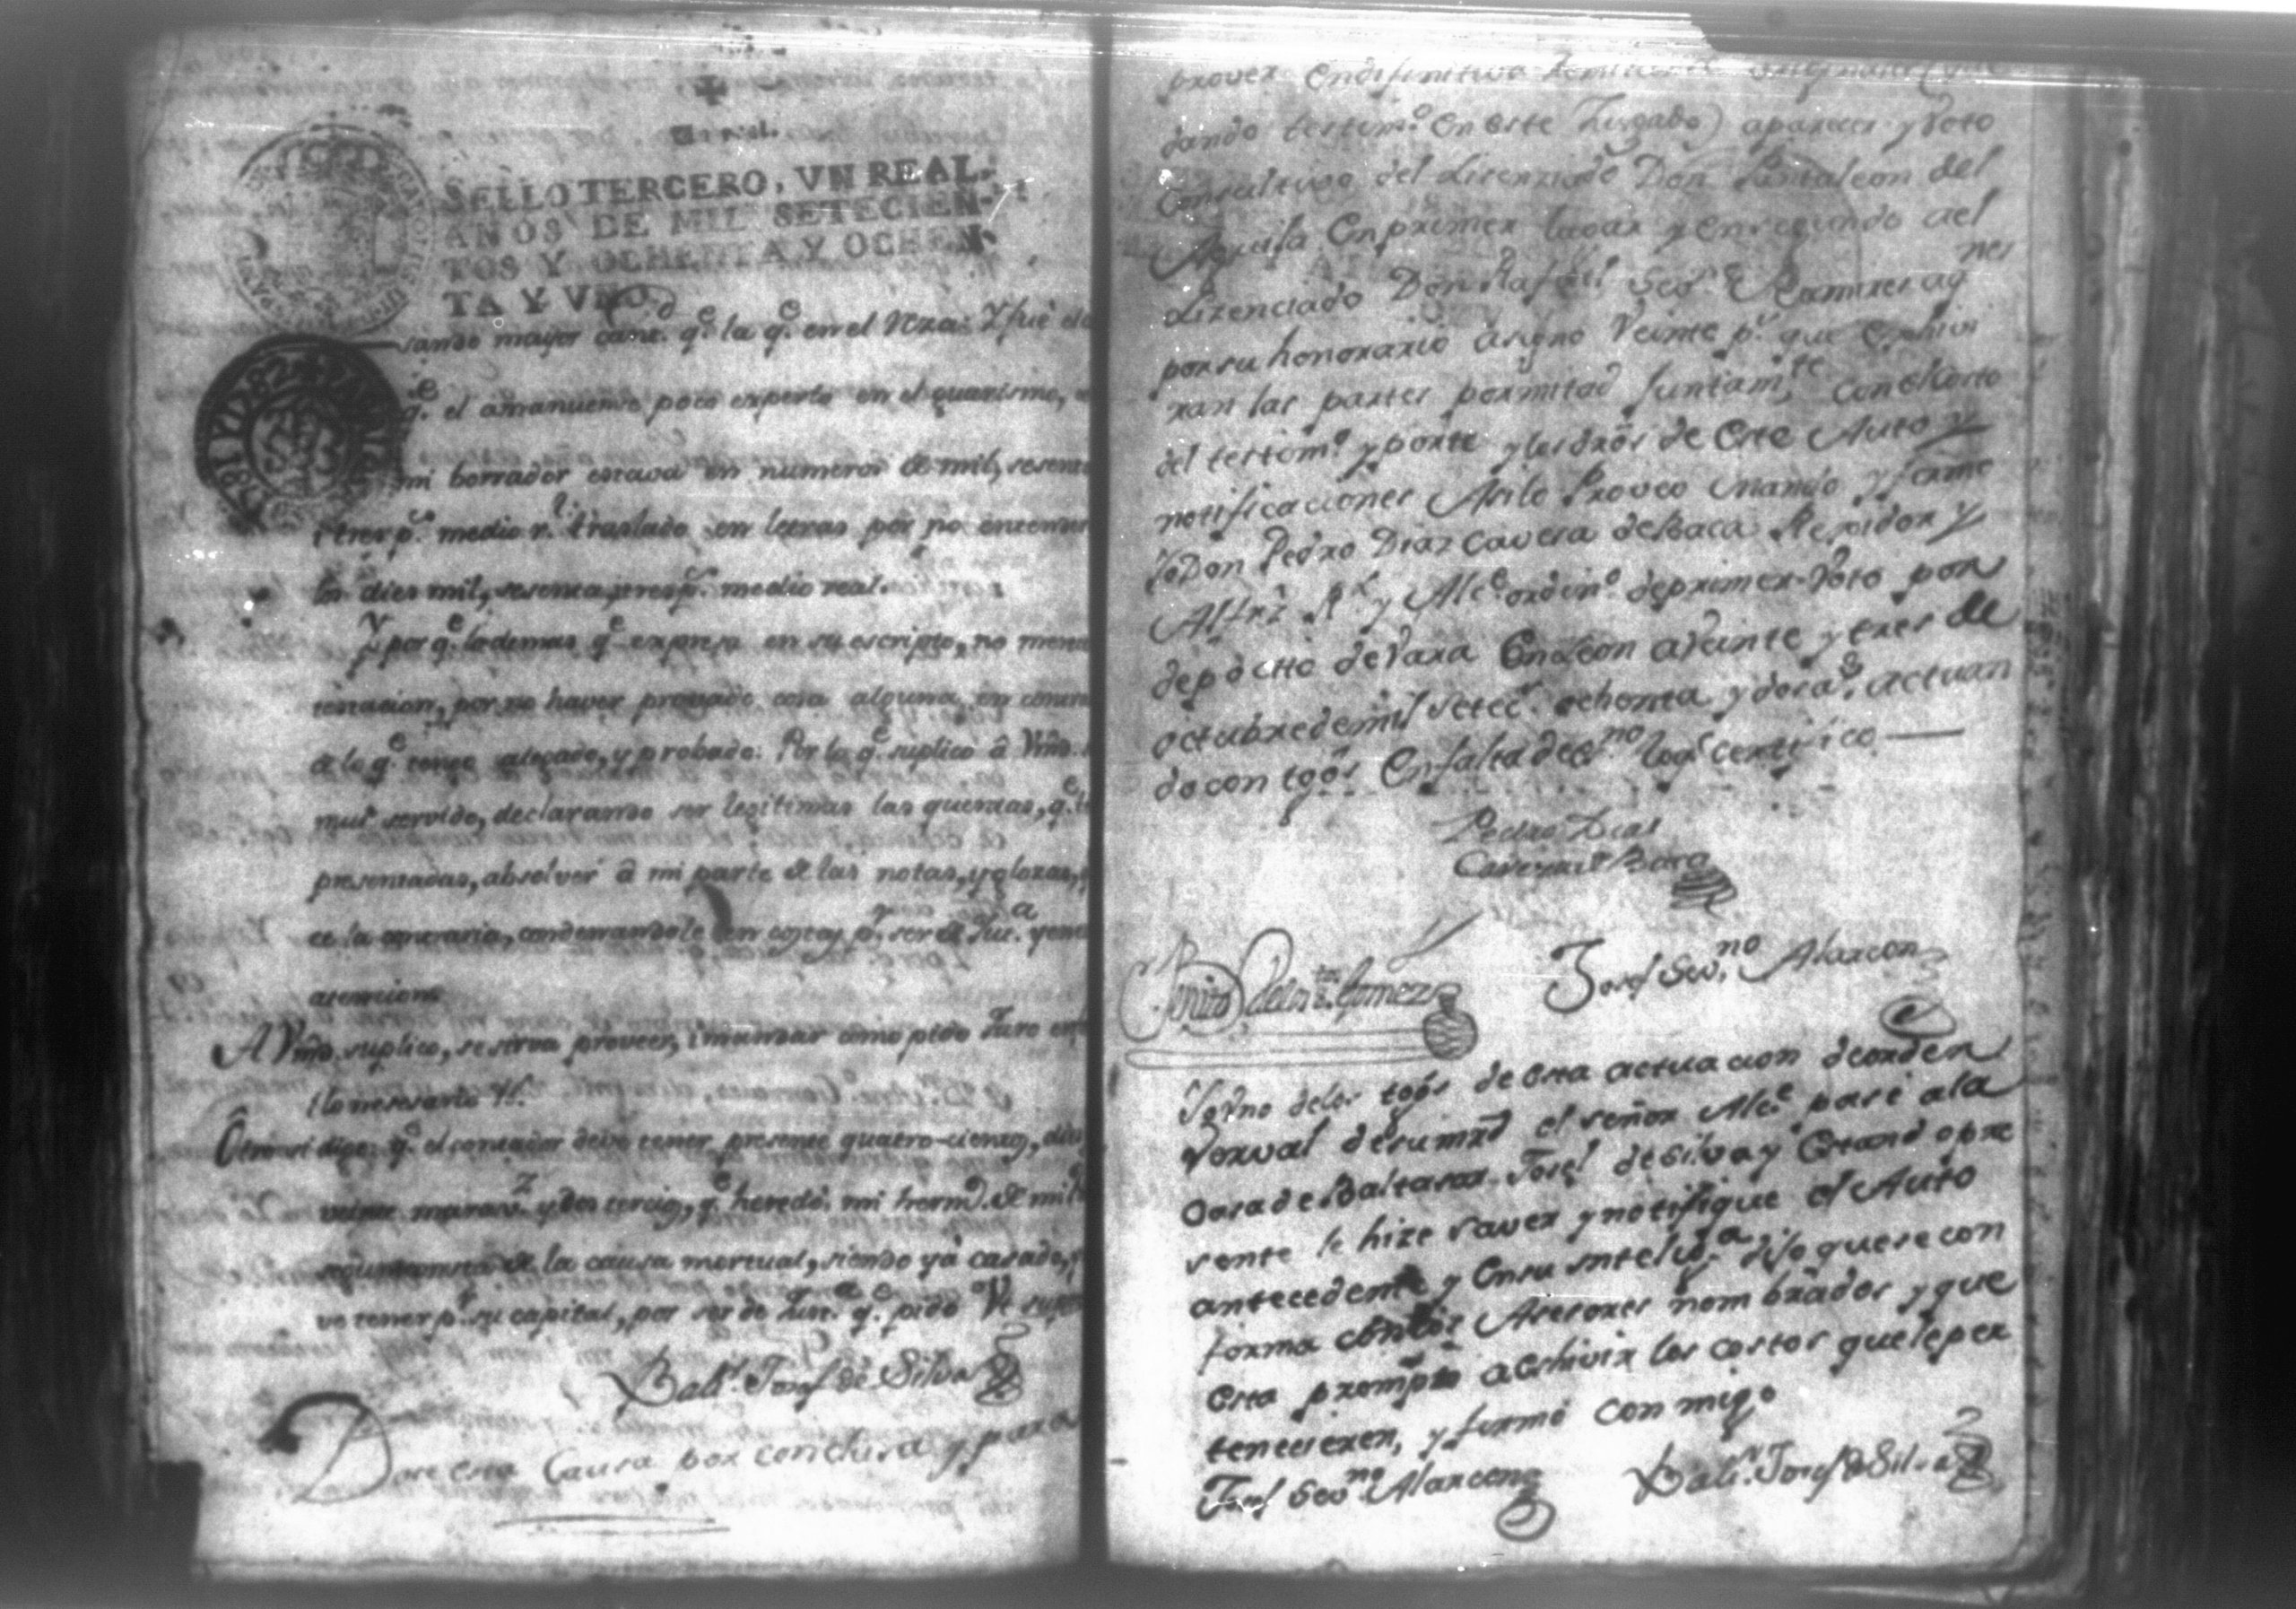 Un real.
SELLO TERCERO, VN REAL,
AÑOS DE MIL SETECIEN-
TOS Y OCHENTA Y OCHEN-
TA Y VNO.
sando mayor cant.d q.e la q.e en el Nxa: Y fué
q.e el amanuense poco experto en el guarismo,
mi borrador estava en numeros de mil, sesenta
i tres p.s medio r.l traslado en letras por no entender
los dies mil, sesenta, i tres p.s medio real.
Y por q.e lo demas q.e expresa en su escripto, no merece
contestacion, por no haver provado cosa alguna en contra
de lo q.e tengo alegado, y probado: Por lo q.e suplico â Vmd.
mui servido, declarando ser legitimas las quentas, q.e
presentadas, absolver â mi parte de las notas, y glozas,
de la contraria, condenandole en costas p.r ser de Jus.a
atencion
A Vmd. suplico, se sirva proveer, i mandar como pido Juro en
i lo nesesario &.
Otro si digo: q.e el contador deve tener presente quatro-cientos,
veinte marav.z y dos tercios, q.e heredó mi herm.o de mi
de la causa mortual, siendo yá casado,
ve tener p.r su capital, por ser de Jus.a q.e pido Vt supra
Balt.r Josef de Silva
Dose esta Causa por conclusa y para
prover en difinitiva
dando testim.o en este Juzgado) apareser y Voto
Consultivo del Lizenziado Don Pantaleon del
Aguila en primer lugar y en segundo ael
Lizenciado Don Rafael Seb.n Ramires aq
nes
por su honorario asigno Veinte p.s que exhivi
ran las partes por mitad Juntam.te con el Costo
del testim.o y porte y los dros de este Auto y
notificaciones Asi lo Proveo mando y firmo
Yo Don Pedro Dias Cavesa de Baca Regidor y
Alfrz R.l y Alc.e ordin.o de primer Voto por
deposito de Vara en Leon a Veinte y tres de
octubre de mil setec.s ochenta y dos a.s actuan
do con tgos en falta de es.no Cog.l certifico
Pedro Dias
Cavesa de Baca
Josef Sev.no Alarcon
Benito de los S.tos Gomez
Yo Vno delos tgos de esta actuacion de orden
Verval de su mrd el señor Alc.e pasé ala
Casa de Baltasar Josef de Silva y Estand opre
sente le hize saver y notifique el Auto
antecedente y en su inteliga dijo que se con
forma con los Asesores nombrados y que
esta prompto a exhivir los costos que le per
tenecieren, y firmó con migo
Josef Sev.no Alarcon
Balt.r Josef de Silva